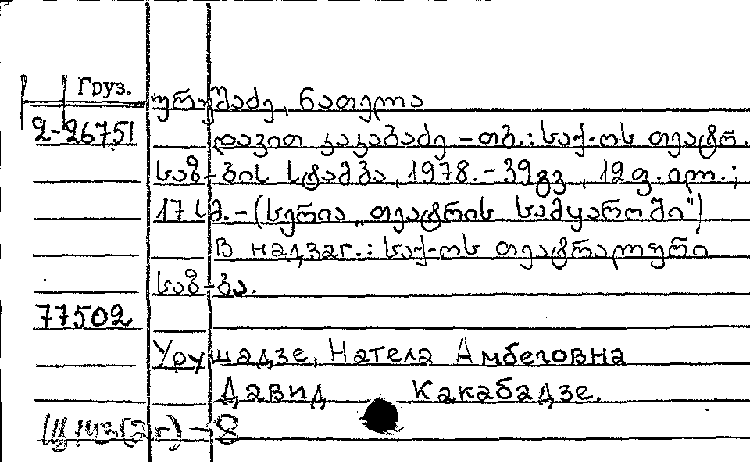 Груз.
ურუშაძე, ნათელა
2-26751
დავით კაკაბაძე – თბ.: საქ-ოს თეატრ.
საზ-ბის სტამბა, 1978. – 39 გვ., 12 ფ. ილ.;
17 სმ. – (სერია „თეატრის სამყაროში“)
В надзаг.: საქ-ოს თეატრალური
საზ-ბა.
77502
Урушадзе, Натела Амбеговна
Давид Какабадзе.
8